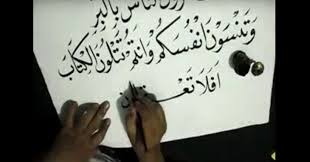 الناس بالبر
وتنسون انفسكم وانتم تتلون الكتاب
افلا